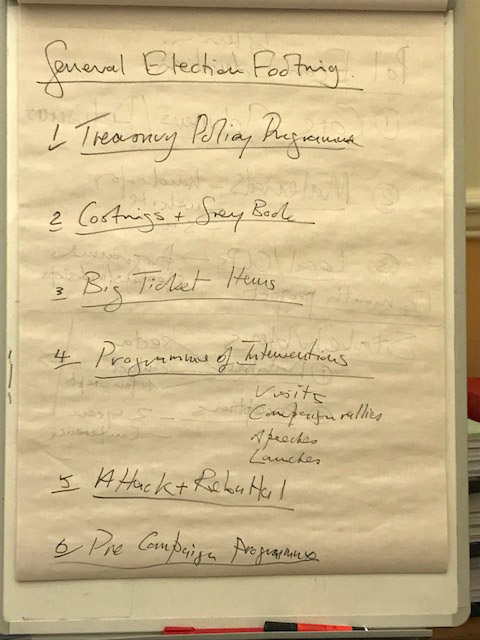 General Election Footing.
1 Treasury Policy Programme
2 Costings + Grey Book
3 Big Ticket Items
4 Programme of Interventions
Visits
Campaign rallies
Speeches
Launches
5 Attack + Rebuttal
6 Pre Campaign Programme